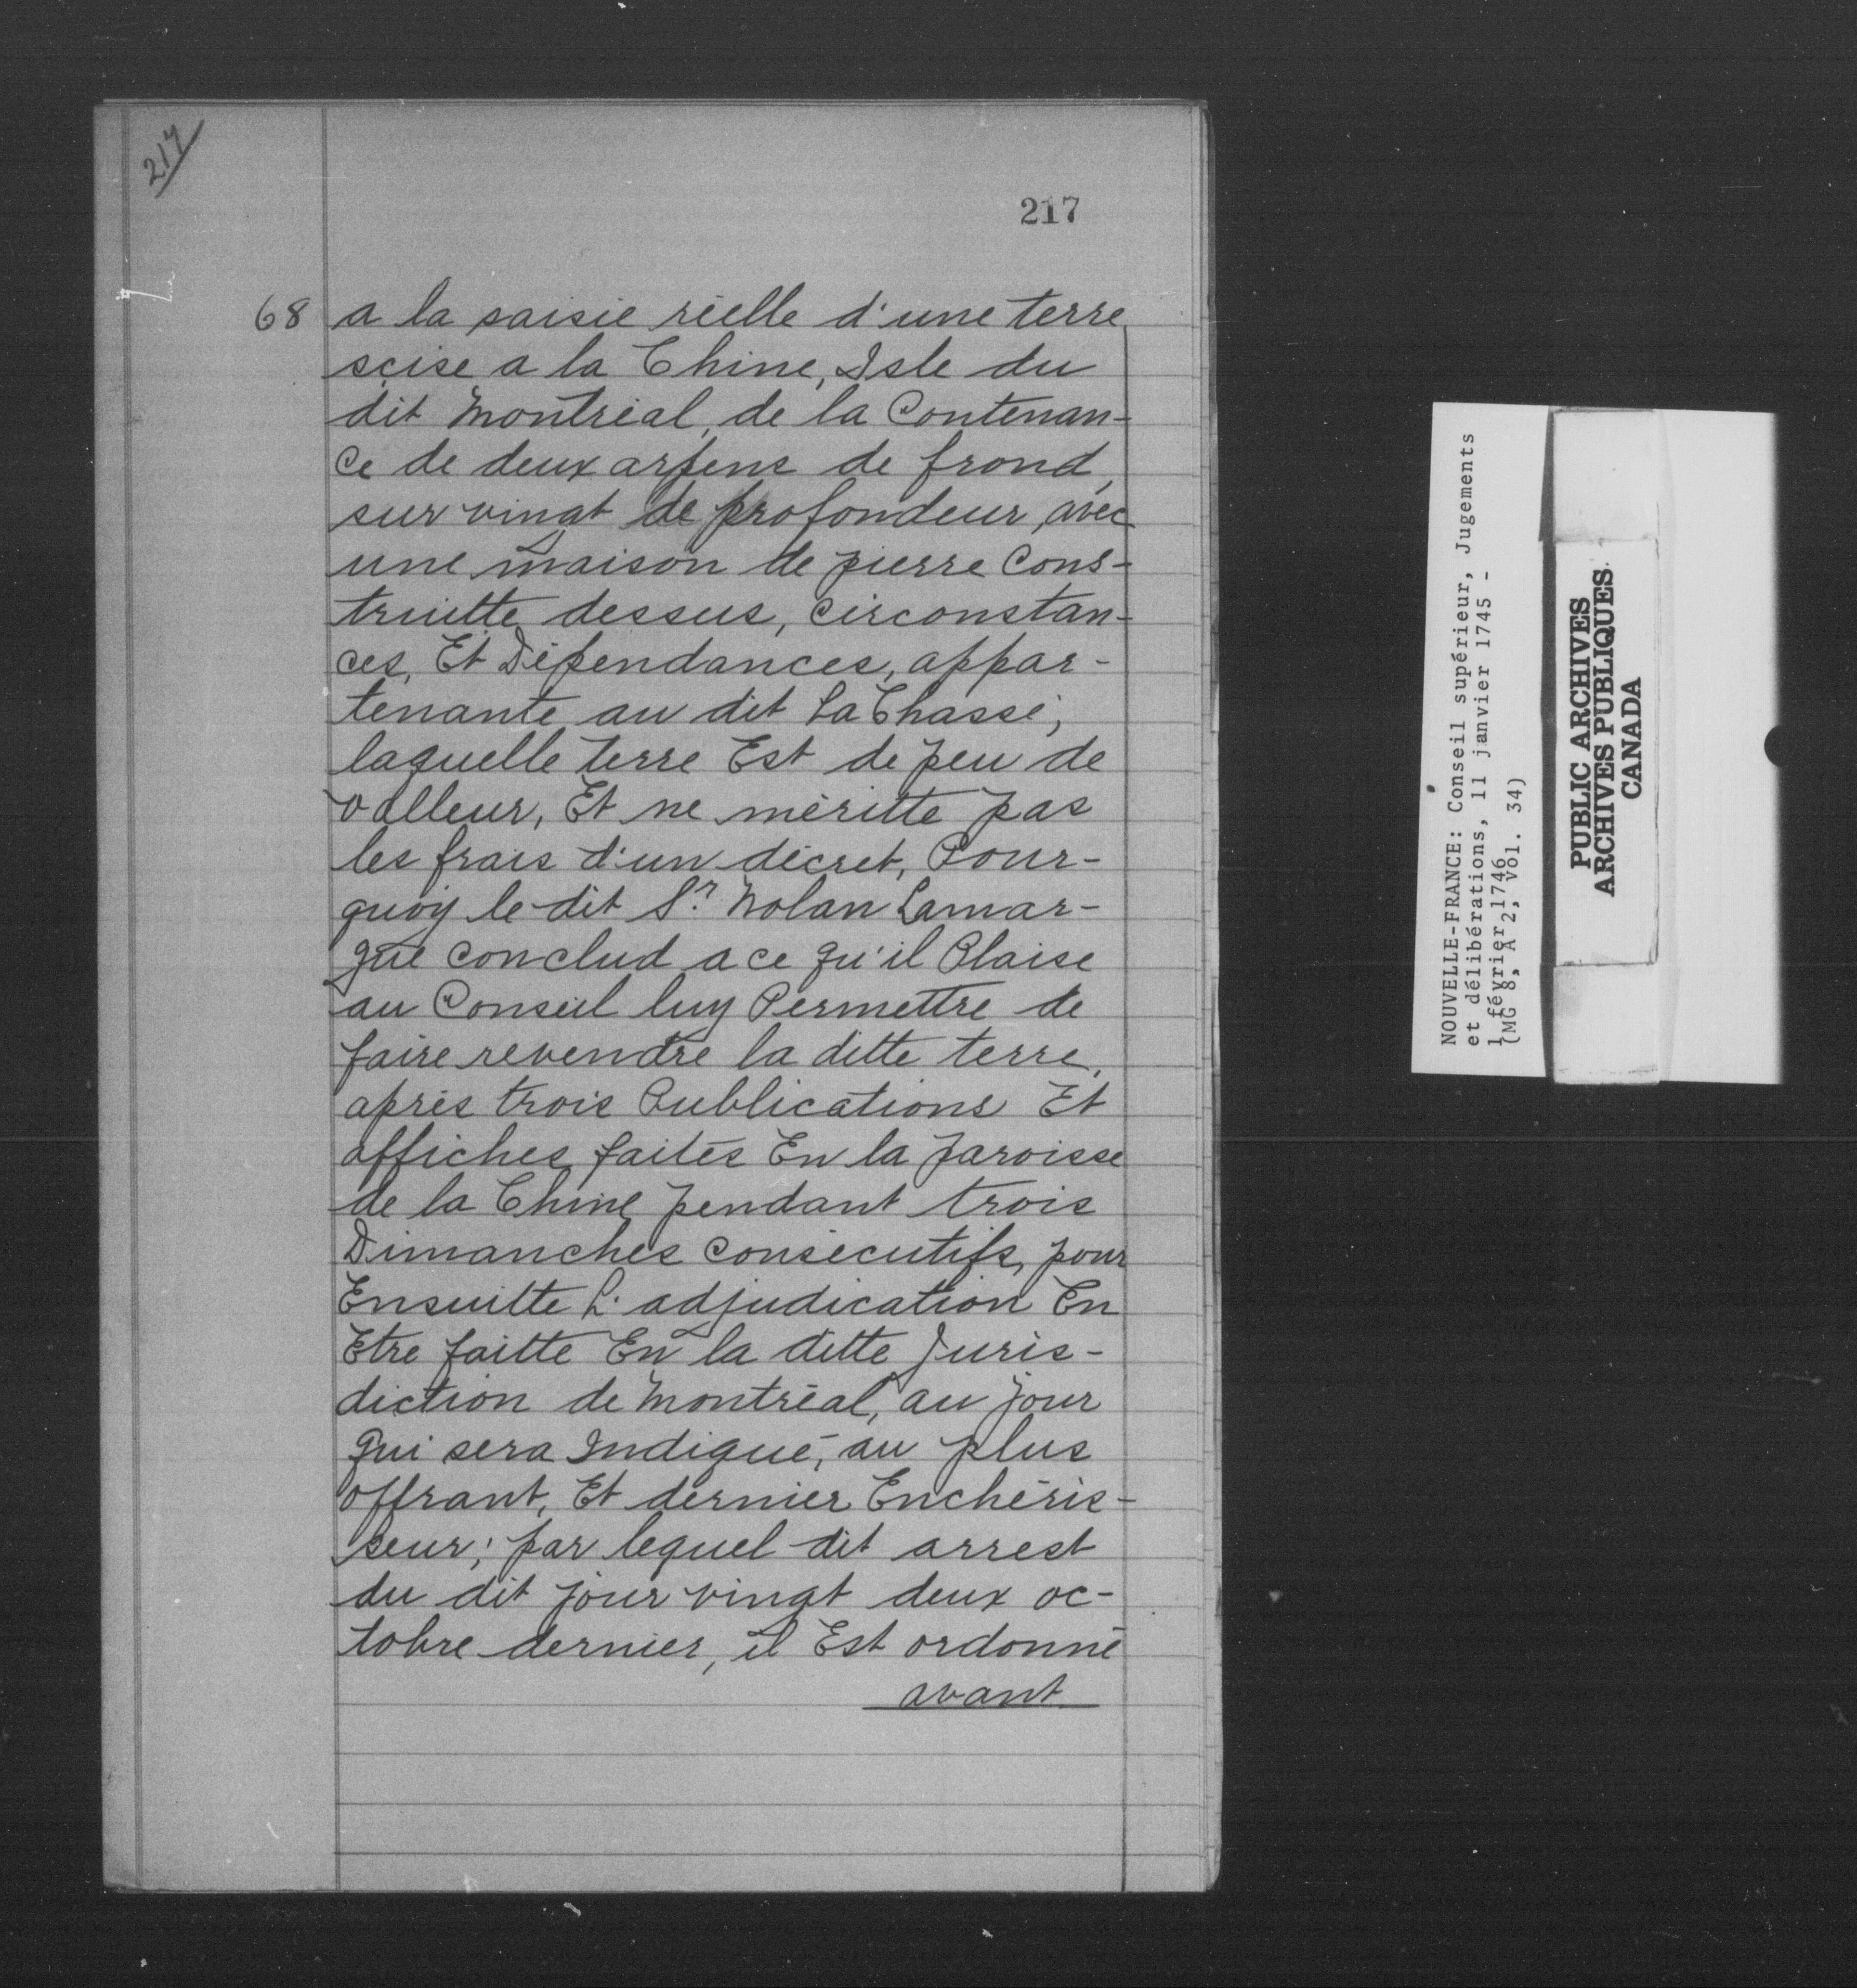 217
217
68 a la saisie réelle d'une terre
scise a la Chine, Isle du
dit Montréal, de la Contenan-
ce de deux arpens de frond,
sur vingt de profondeur, avec
une maison de pierre Cons-
truitte dessus, circonstan-
ces, Et Dépendances, appar-
tenante au dit La Chasse,
laquelle terre Est de peu de
valleur, Et ne méritte pas
les frais d'un décret, Pour-
quoy le dit Sr. Nolan Lamar-
que conclud a ce qu'il Plaise
au Conseil luy Permettre de
faire revendre la ditte terre,
aprés trois Publications Et
affiches faites En la paroisse
de la Chine pendant trois
Dimanches consécutifs, pour
Ensuitte L'adjudication En
Etre faitte En la ditte Juris-
diction de Montréal, au jour
qui sera Indiqué, au plus
offrant, Et dernier Enchéris-
seur; par lequel dit arrest
du dit jour vingt deux oc-
tobre dernier, il Est ordonné
avant
NOUVELLE-FRANCE: Conseil supérieur, Jugements
et délibérations, 11 janvier 1745 -
1 février 1746
(MG 8, A 2, vol. 34)
PUBLIC ARCHIVES
ARCHIVES PUBLIQUES
CANADA